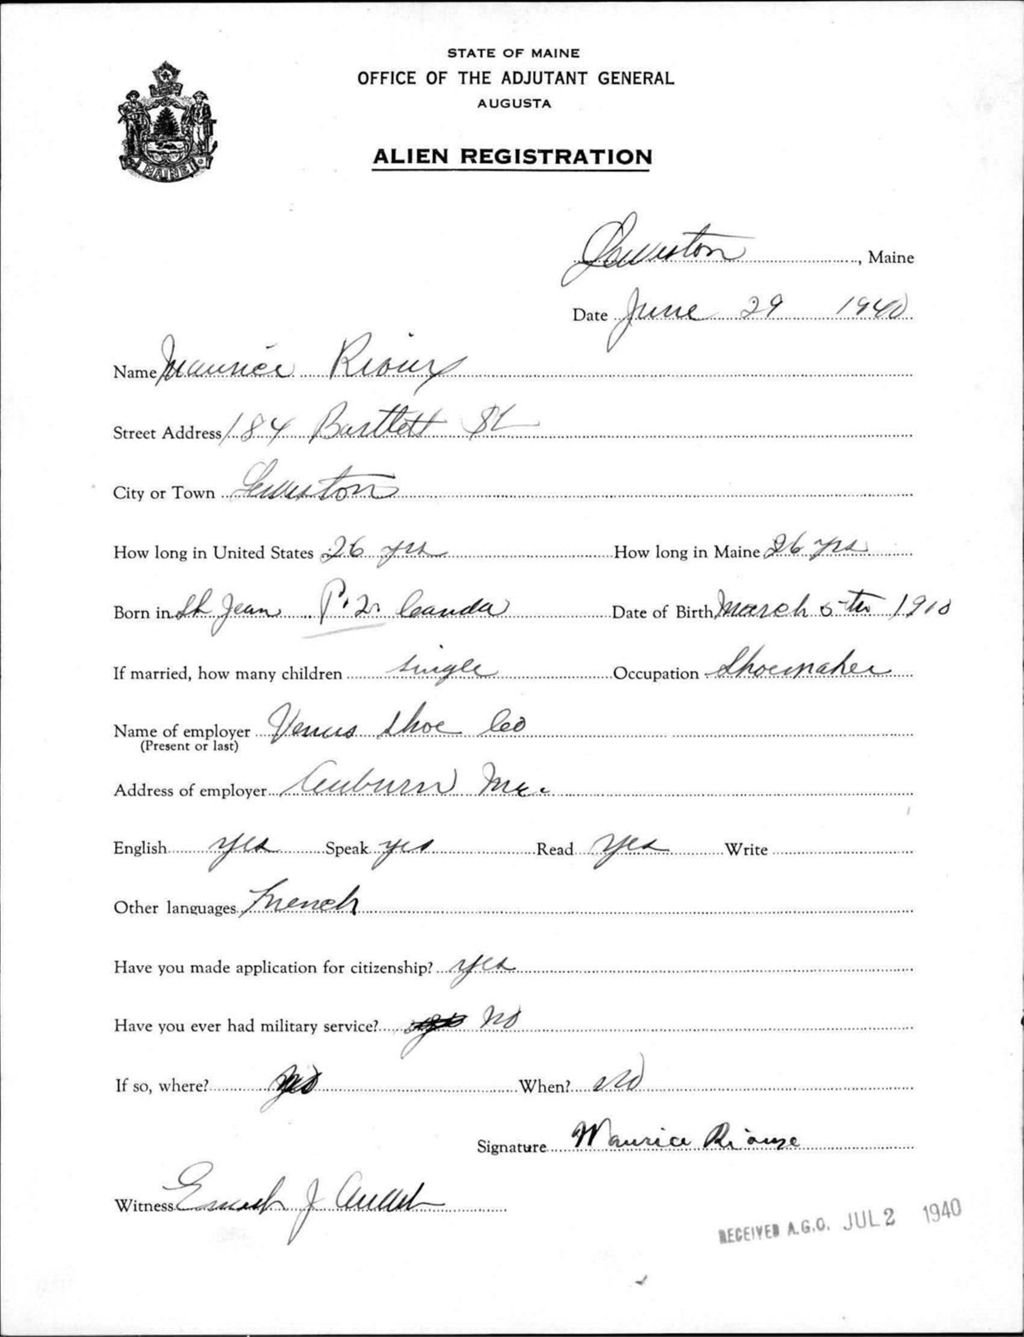 STATE OF MAINE
OFFICE OF THE ADJUTANT GENERAL
AUGUSTA
ALIEN REGISTRATION
MAINE
Lewiston, Maine
Date June 29 1940
Name Maurice Rioux
Street Address 184 Bartlett St
City or Town Lewiston
How long in United States 26 yrs How long in Maine 26 yrs
Born in St Jean P.Q. Canda Date of Birth March 5th 1910
If married, how many children single Occupation Shoemaker
Name of employer Venus Shoe Co
(Present or last)
Address of employer Auburn Me.
English yes Speak yes Read yes Write
Other languages French
Have you made application for citizenship? yes
Have you ever had military service? No
If so, where? No When? No
Signature Maurice Rioux
Witness J
RECEIVED A.G.O. JUL 2 1940